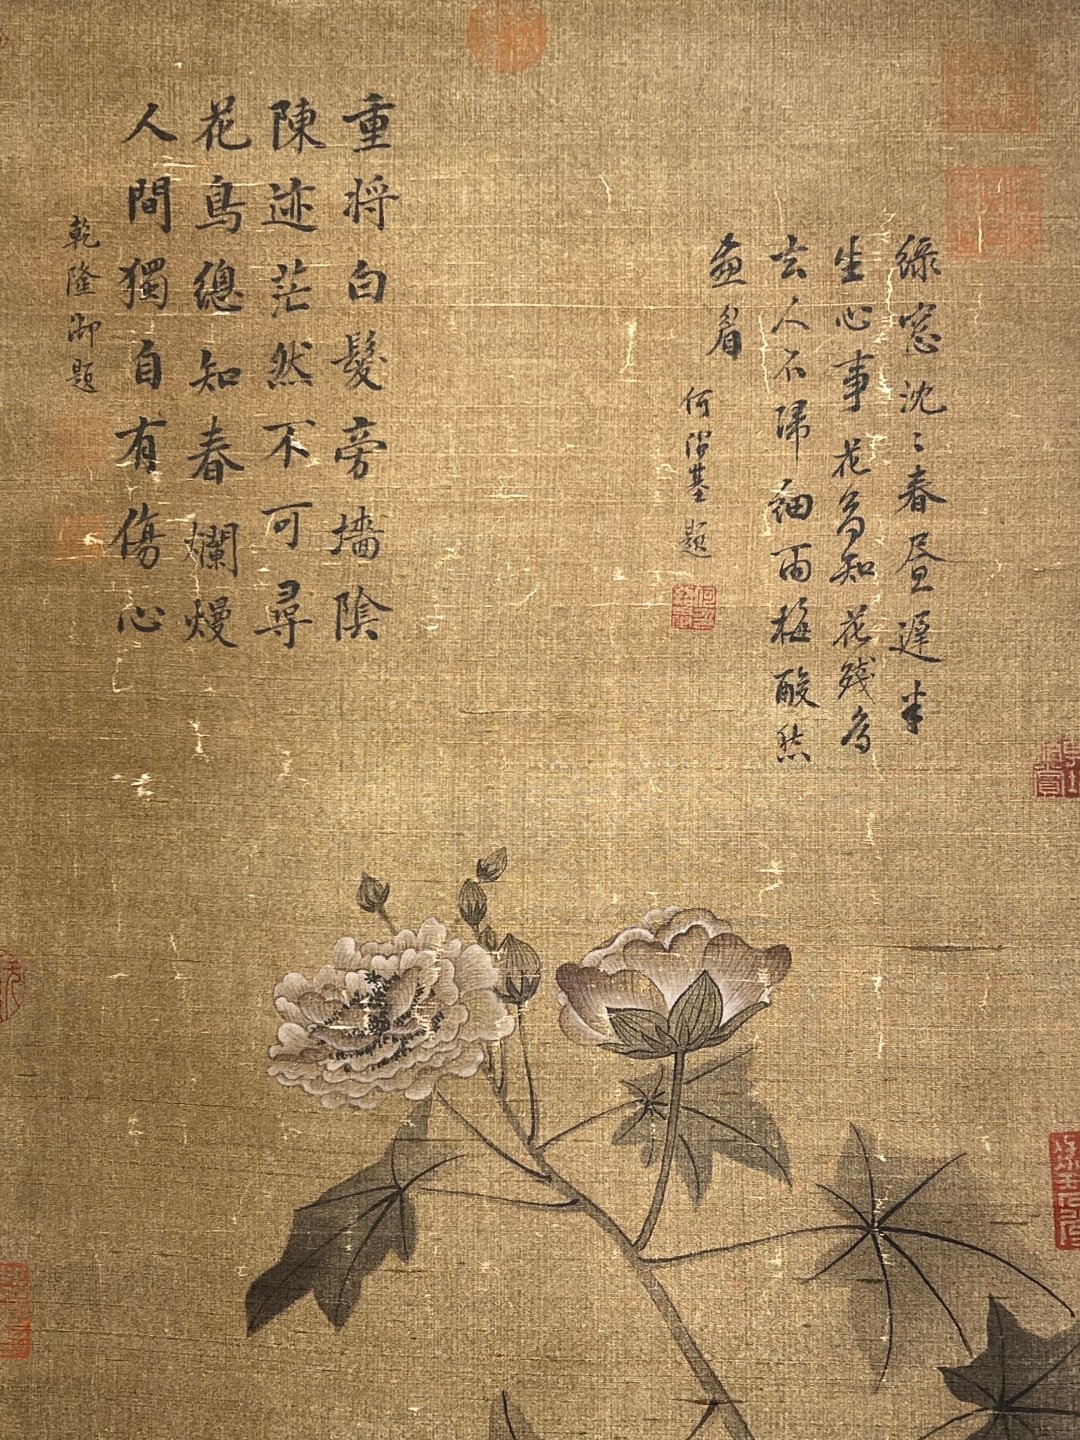 綠窓沈〻春昼遲半
生心事花鳥知花殘鳥
去人不歸細雨梅酸愁
画眉
何紹基題
重将白髮旁墻陰
陳迹茫然不可尋
花鳥總知春爛熳
人間獨自有傷心
乾隆御題